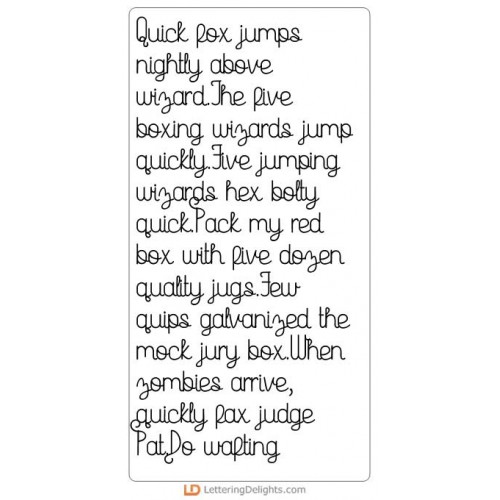 Quick fox jumps
nightly above
wizard.The five
boxing wizards jump
quickly.Five jumping
wizards hex bolty
quick.Pack my red
box with five dozen
quality jugs.Few
quips galvanized the
mock jury box.When
zombies arrive,
quickly fax judge
Pat.Do wafting
LD LetteringDelights.com